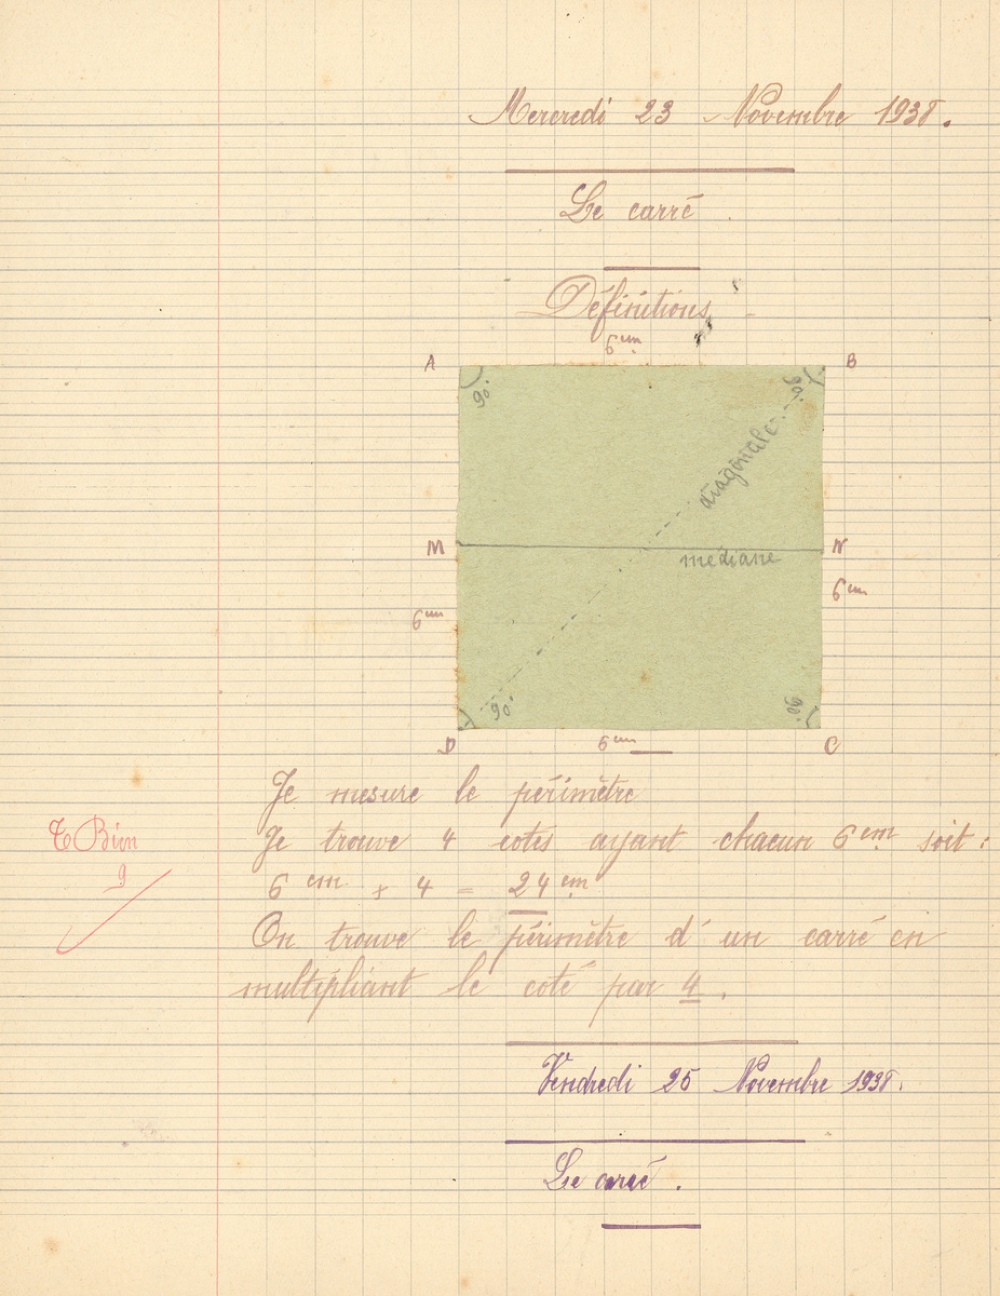 Mercredi 23 Novembre 1938.
Le carré
Définitions
6 cm
A
B
90°
90°
diagonale
M
N
médiane
6 cm
6 cm
90°
90°
D
6 cm
C
Je mesure le périmètre
T Bien
Je trouve 4 cotés ayant chacun 6 cm soit :
9
6 cm x 4 = 24 cm
On trouve le périmètre d'un carré en
multipliant le coté par 4.
Vendredi 25 Novembre 1938.
Le carré.